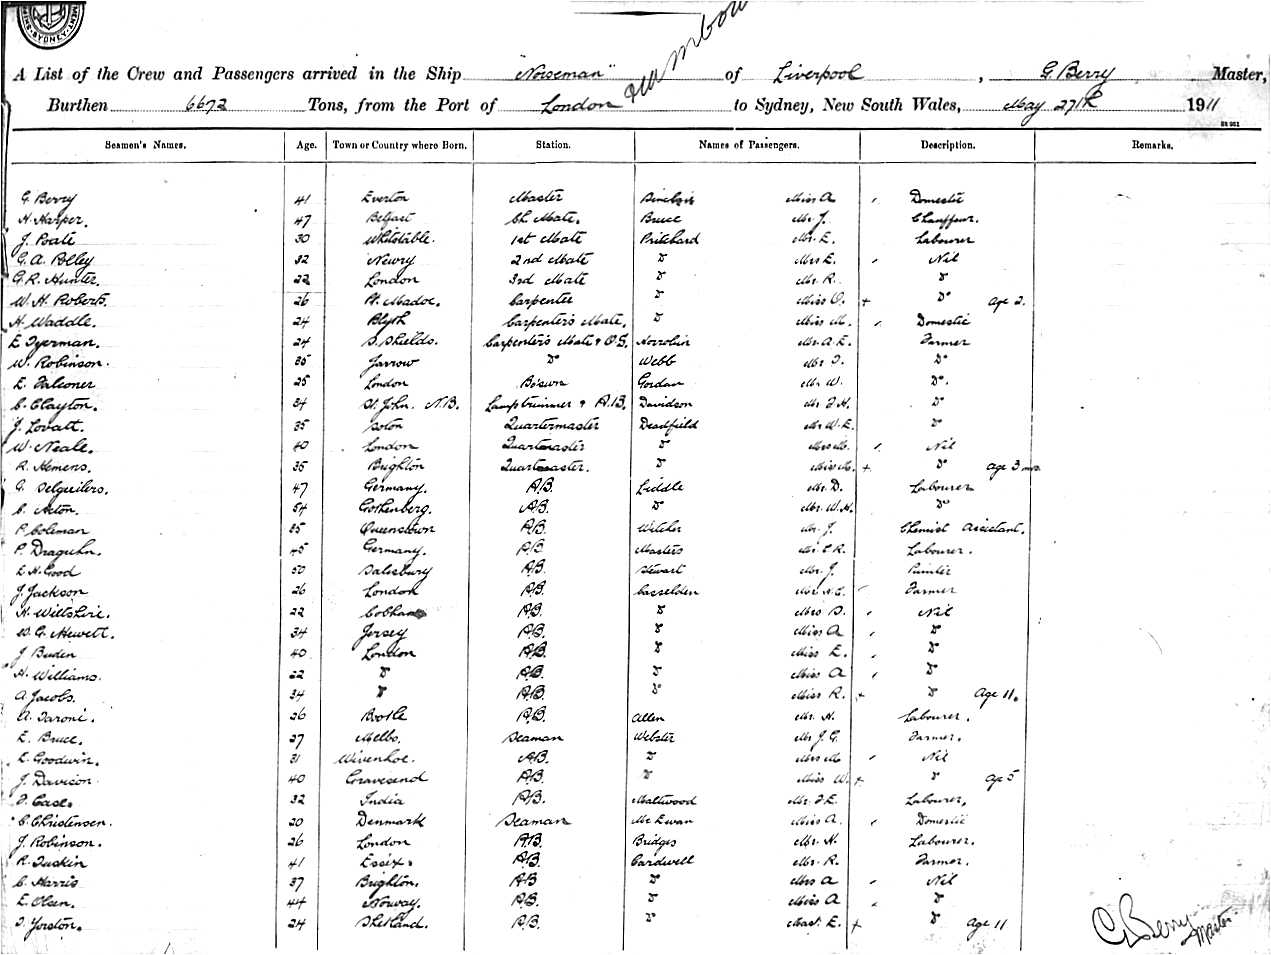 SYDNEY
A List of the Crew and Passengers arrived in the Ship "Norseman" of Liverpool, G. Berry Master,
Burthen 6672 Tons, from the Port of London to Sydney, New South Wales, May 27th 1911
Seamen's Names. Age. Town or Country where Born. Station. Names of Passengers. Description. Remarks.
G. Berry 41 Everton Master Sinclair Miss A Domestic
H. Harper. 47 Belfast Ch. Mate. Bruce Mr. J. Chauffeur.
J. Poate 30 Whitstable. 1st Mate Pritchard Mr. E. Labourer
G. A. Polley 32 Newry 2nd Mate Do Mrs E. Nil
G. R. Hunter. 22 London 3rd Mate Do Mr. R. Do
W. H. Roberts. 26 Pt. Madoc. Carpenter Do Miss O. + Do age 2.
H. Waddle. 24 Blyth Carpenter's Mate. Do Miss M. Domestic
E. Tyerman. 24 S. Shields. Carpenter's Mate & O.S. Mr. A. E. Farmer
W. Robinson. 35 Jarrow Do Webb Mr. Do
E. Falconer 25 London Bo'sun Gordan Mr. W. Do.
C. Clayton. 34 St. John. N.B. Lamptrimmer & A.B. Davidson Mr. F. H. Do
J. Lovatt. 35 Soton Quartermaster Deadfield Mr W. E. Do
W. Neale. 40 London Quartermaster Do Mrs M. Nil
R. Hemens. 35 Brighton Quartermaster. Do Miss M. + Do age 3 mos.
G. 47 Germany. A.B. Liddle Mr. D. Labourer
C. Acton. 54 Gothenberg. A.B. Do Mr. W. H. Do
P. Coleman 35 Queenstown A.B. Mr. J. Chemist Assistant.
P. Draguhn. 45 Germany. A.B. Masters Mr C R. Labourer.
E. H. Good 50 Salisbury A.B. Stewart Mr. J. Painter
J. Jackson 26 London A.B. Casselden Mr. H. C. Farmer
H. Wiltshire. 22 Cobham A.B. Do Mrs S. Nil
W. G. Hewett. 34 Jersey A.B. Do Miss A Do
J Buden 40 London A.B. Do Miss E. Do
H. Williams. 22 Do A.B. Do Miss A Do
A. Jacobs. 34 Do A.B. Do Miss R. + Do Age 11.
A. Taroni. 26 Bootle A.B. Allen Mr. H. Labourer.
E. Bruce. 27 Melbo. Seaman Webster Mr J. G. Farmer.
E. Goodwin. 31 Wivenhoe. A.B. Do Mrs M Nil
J. Davison 40 Gravesend A.B. Do Miss W. + Do age 5
F. Case. 32 India A.B. Maltwood Mr. F. E. Labourer,
C. Christensen. 20 Denmark Seaman McEwan Miss A. Domestic
J. Robinson. 26 London A.B. Bridges Mr. H. Labourer.
R. Tuskin 41 Essex. A.B. Cardwell Mr. R. Farmer.
C. Harris 37 Brighton. A.B Do Mrs A Nil
E. Olsen. 44 Norway. A.B. Do Miss A Do
J. Yorston. 24 Shetland. A.B. Do Mast. E. + Do Age 11
G Berry
Master